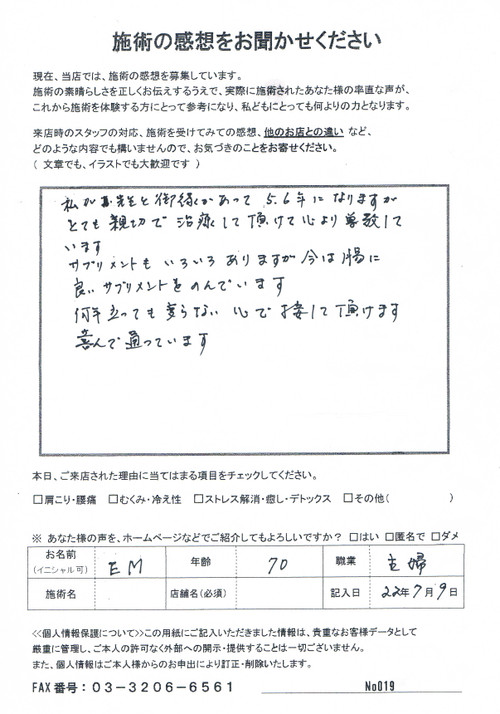 施術の感想をお聞かせください
現在、当店では、施術の感想を募集しています。
施術の素晴らしさを正しくお伝えするうえで、実際に施術されたあなた様の率直な声が、
これから施術を体験する方にとって参考になり、私どもにとっても何よりの力となります。
来店時のスタッフの対応、施術を受けてみての感想、他のお店との違い など、
どのような内容でも構いませんので、お気づきのことをお寄せください。
( 文章でも、イラストでも大歓迎です )
私が 先生と御縁があって 5.6年になりますが
とても親切で治療して頂けて心より尊敬して
います
サプリメントもいろいろありますが今は腸に
良いサプリメントをのんでいます
何年立っても変らない心で接して頂けます
喜んで通っています
本日、ご来店された理由に当てはまる項目をチェックしてください。
□肩こり・腰痛 □むくみ・冷え性 □ストレス解消・癒し・デトックス □その他( )
※ あなた様の声を、ホームページなどでご紹介してもよろしいですか? □はい □匿名で □ダメ
お名前 (イニシャル可) EM 年齢 70 職業 主婦
施術名 店舗名(必須) 記入日 22年7月9日
<<個人情報保護について>>この用紙にご記入いただきました情報は、貴重なお客様データとして
厳重に管理し、ご本人の許可なく外部への開示・提供することは一切ございません。
また、個人情報はご本人様からのお申出により訂正・削除いたします。
FAX番号：03-3206-6561 No019